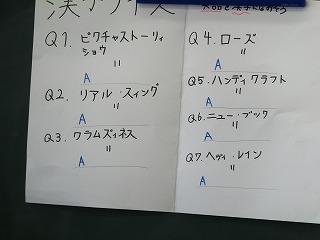 漢字クイズ
Q1. ピクチャストーリィ
ショウ
=
A
Q2. リアル・スィング
=
A
Q3. ワラムズィネス
=
A
Q4. ローズ
=
A
Q5. ハンディクラフト
=
A
Q6. ニュー・ブック
=
A
Q7. ヘヴィ・レイン
=
A